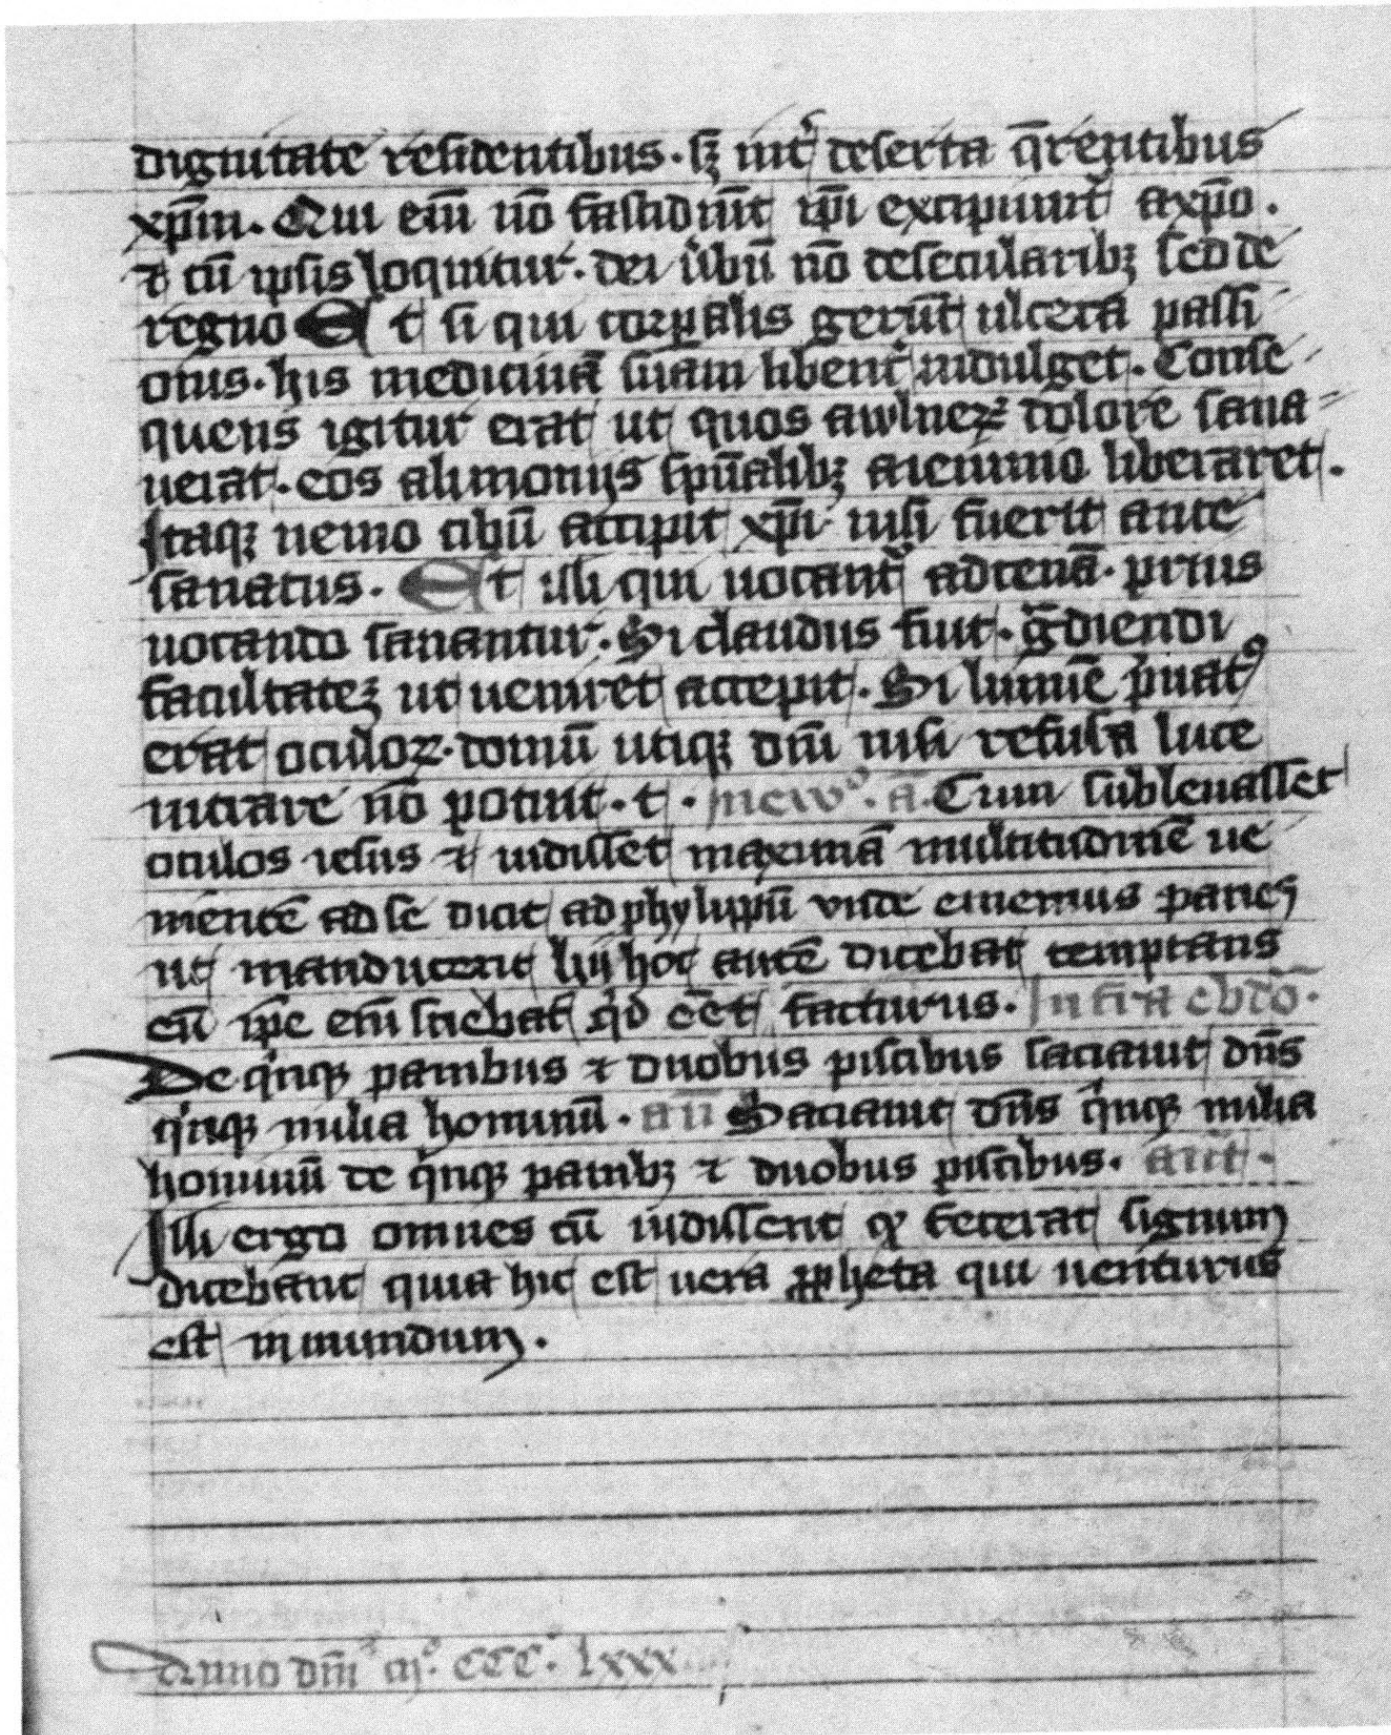 dignitate residentibus. sꝫ int̾ deserta q̄rentibus
xp̄m. Qui eni̅ no̅ fastidiu̅t ip̄i excipiunt̾ a xp̄o.
⁊ cu̅ ipsis loquitur. dei v̾bu̅ no̅ de secularibꝫ sed de
regno Et si qui corꝑalis geru̅t ulcera passi
onis. his medicina̅ suam libent̾ indulget. Conse
quens igitur erat ut quos a wlneꝝ dolore sana
uerat. eos alimoniis sp̅ualibꝫ a ieiunio liberaret.
Itaqꝫ nemo cibu̅ accipit xp̄i nisi fuerit ante
sanatus. Et illi qui uocant̾ ad cena̅. prius
uocando sanantur. Si claudus fuit. gͣdiendi
facultateꝫ ut ueniret accepit. Si lumine̅ pͥuatꝰ
erat oculoꝝ. domu̅ utiqꝫ dn̄i nisi refusa luce
intrare no̅ potuit. t. In ewº. a̅. Cum subleuasset
oculos iesus ⁊ uidisset maxima̅ multitudine̅ ue
niente̅ ad se dicit ad phylippu̅ vnde ememus panes
ut manducent hij hoc aute̅ dicebat temptans
eu̅ ip̄e eni̅ sciebat qͥd e̅et facturus. Infra ebdo̅.
De qͥnqꝫ panibus ⁊ duobus piscibus saciauit dn̄s
qͥnqꝫ milia hominu̅. an̅ Saciauit dn̄s qͥnqꝫ milia
hominu̅ de qͥnqꝫ panibꝫ ⁊ duobus piscibus. ant̅.
Illi ergo omnes cu̅ uidissent ꝙ fecerat signum
dicebant quia hic est uera ꝓpheta qui uenturus
est in mundum.
Anno dn̄i mº. cccº. lxxx